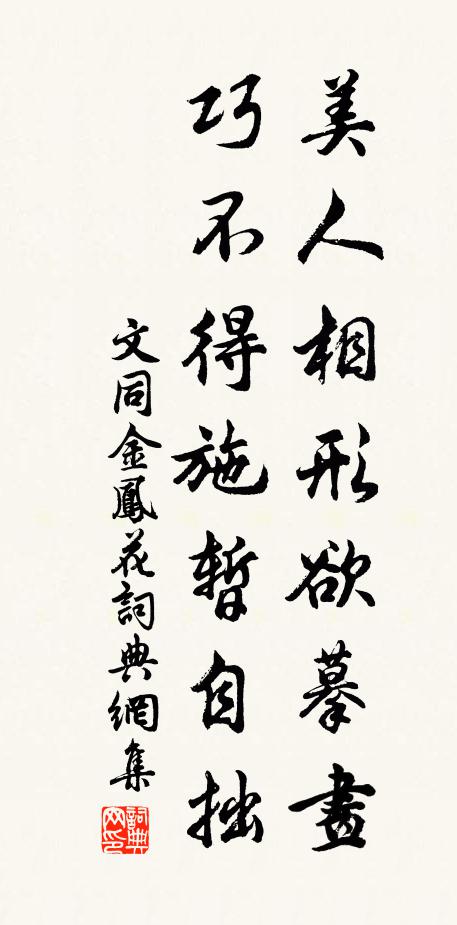 美人相形欲摹畫
巧不得施暫自拙
文同金鳳花詞典網集
詞典網印